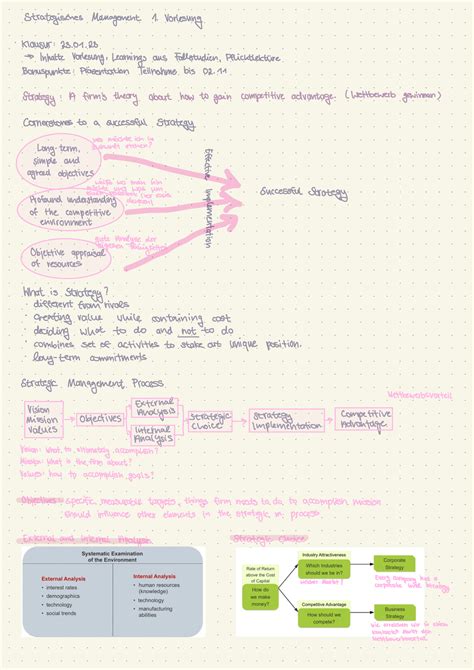 Strategisches Management 1. Vorlesung
Klausur: 23.01.23
→ Inhalte Vorlesung, Learnings aus Fallstudien, Pflichtlektüre
Bonuspunkte: Präsentation Teilnahme bis 02.11
Strategy: A firm's theory about how to gain competitive advantage. (Wettbewerb gewinnen)
Cornerstones to a successful Strategy
Long-term,
simple and
agreed objectives
Profound understanding
of the competitive
environment
Objektive appraisal
of resources
Effective Implementation
Successful Strategy
What is Strategy?
• different from rivals
• creating value while containing cost
• deciding what to do and not to do
• combines set of activities to stake out unique position.
• long-term commitments
Strategic Management Process
Wettbewerbsvorteil
Vision
Mission
Values
Objectives
External
Analysis
Internal
Analysis
Strategic
Choice
Strategy
Implementation
Competitive
Advantage
Vision: What to ultimately accomplish?
Mission: What is the firm about?
Values: how to accomplish goals?
Objectives: specific, measurable targets, things firm needs to do to accomplish mission
should influence other elements in the strategic m. process
External and Internal Analysis
Systematic Examination
of the Environment
External Analysis
• interest rates
• demographics
• technology
• social trends
Internal Analysis
• human resources
(knowledge)
• technology
• manufacturing
abilities
Strategic Choice
Rate of Return
above the Cost
of Capital
How do
we make
money?
Industry Attractiveness
Which Industries
should we be in?
welcher Markt?
Corporate
Strategy
Every company has a
corporate level strategy
Competitive Advantage
How should we
compete?
Business
Strategy